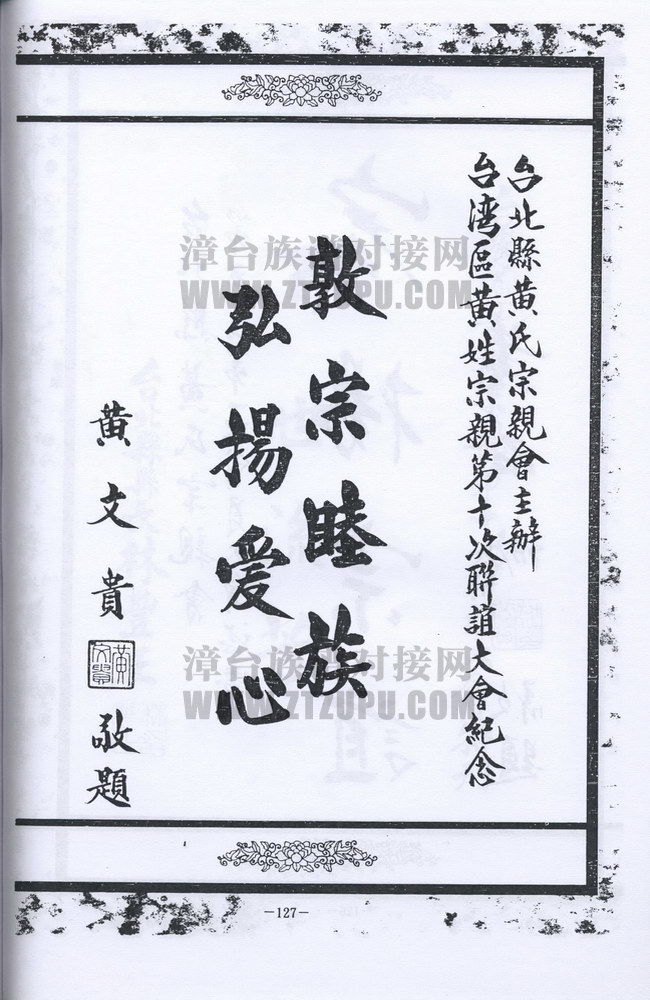 台北縣黃氏宗親會主辦
台湾區黃姓宗親第十次聯誼大會紀念
敦宗睦族
弘揚爱心
黃文貴 敬題
黃文貴
漳台族谱对接网
WWW.ZTZUPU.COM
漳台族谱对接网
WWW.ZTZUPU.COM
—127—